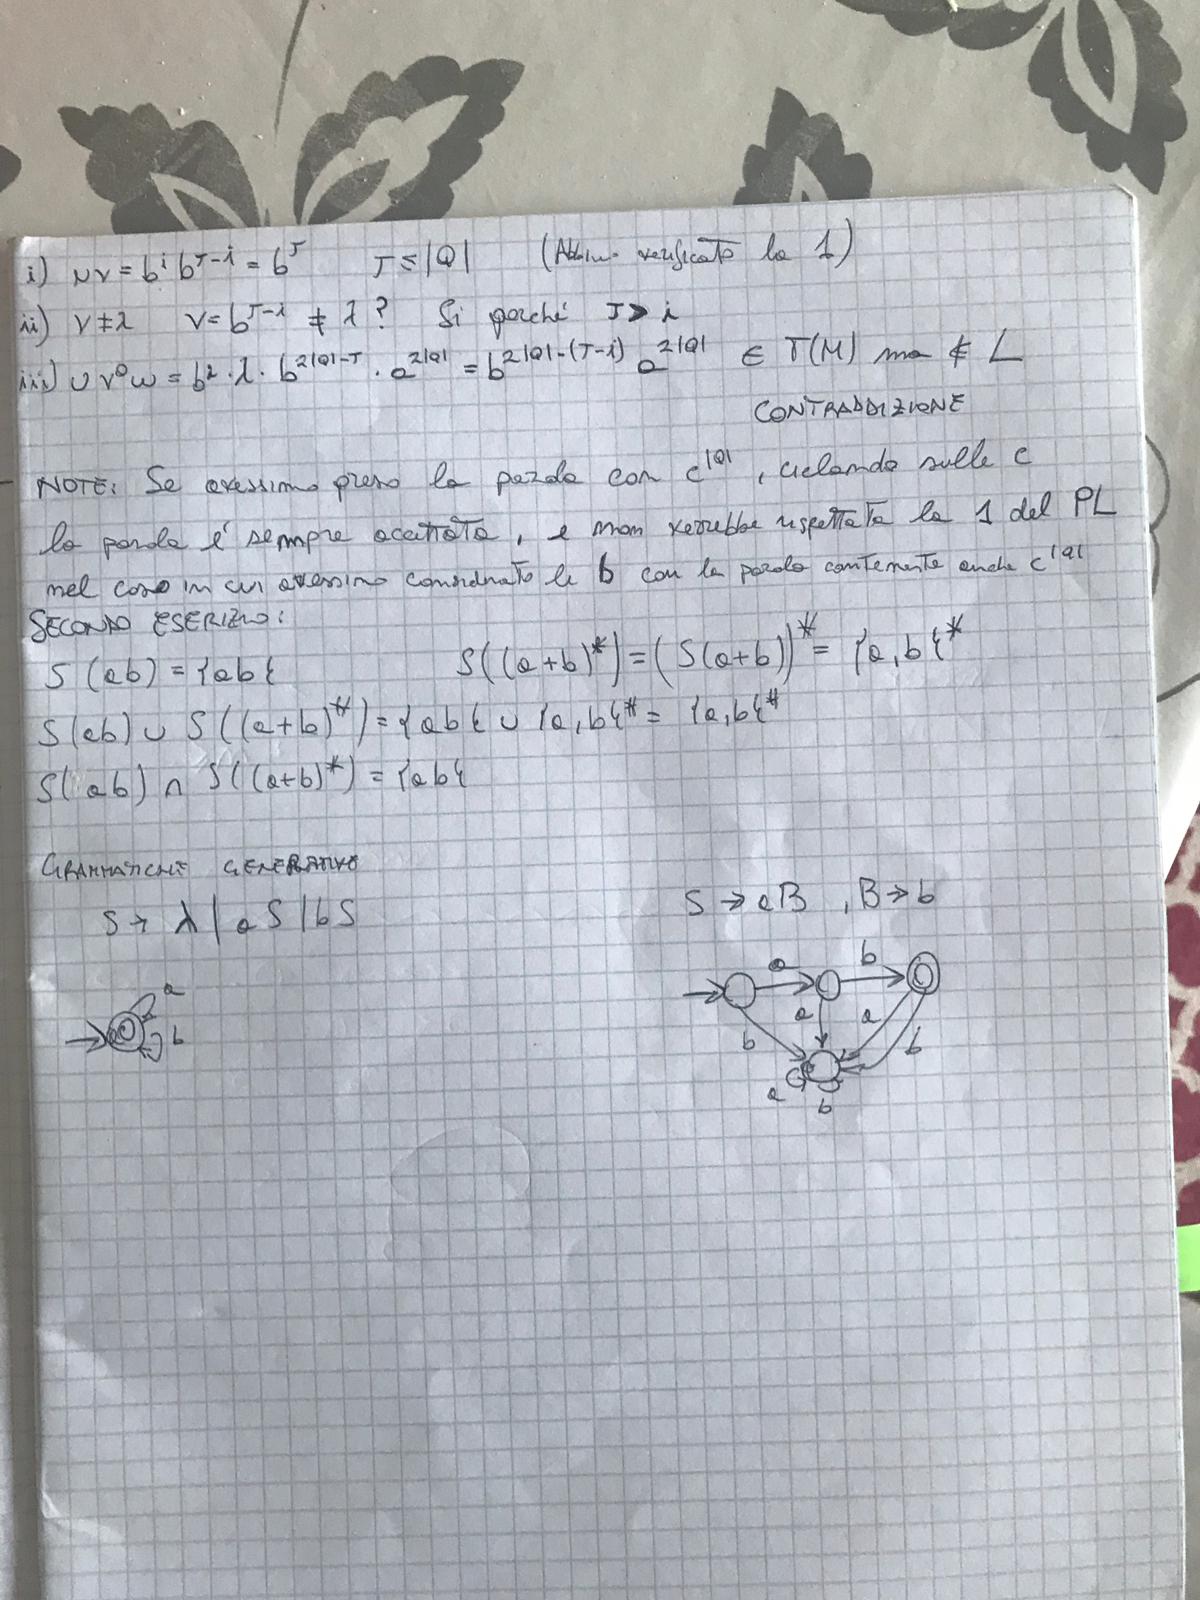 i) uv = b^i b^{J-i} = b^J   J ≤ |Q|   (Abbiamo verificato la 1)
ii) v ≠ λ   v = b^{J-i} ≠ λ ?   Si perché J > i
iii) u v^0 w = b^2 · λ · b^{2|Q|-J} · a^{2|Q|} = b^{2|Q|-(J-i)} a^{2|Q|} ∈ T(M) ma ∉ L
CONTRADDIZIONE
NOTE: Se avessimo preso la parola con c^{|Q|}, ciclando sulle c
la parola è sempre accettata, e non verrebbe rispettata la 1 del PL
nel caso in cui avessimo considerato le b con la parola contenente anche c^{|Q|}
SECONDO ESERIZIO:
S(ab) = {ab}   S((a+b)*) = (S(a+b))* = {a,b}*
S(ab) ∪ S((a+b)*) = {ab} ∪ {a,b}* = {a,b}*
S(ab) ∩ S((a+b)*) = {ab}
GRAMMATICHE GENERATIVE
S → λ | aS | bS   S → aB , B → b
a b
a b
a a
b b
a b